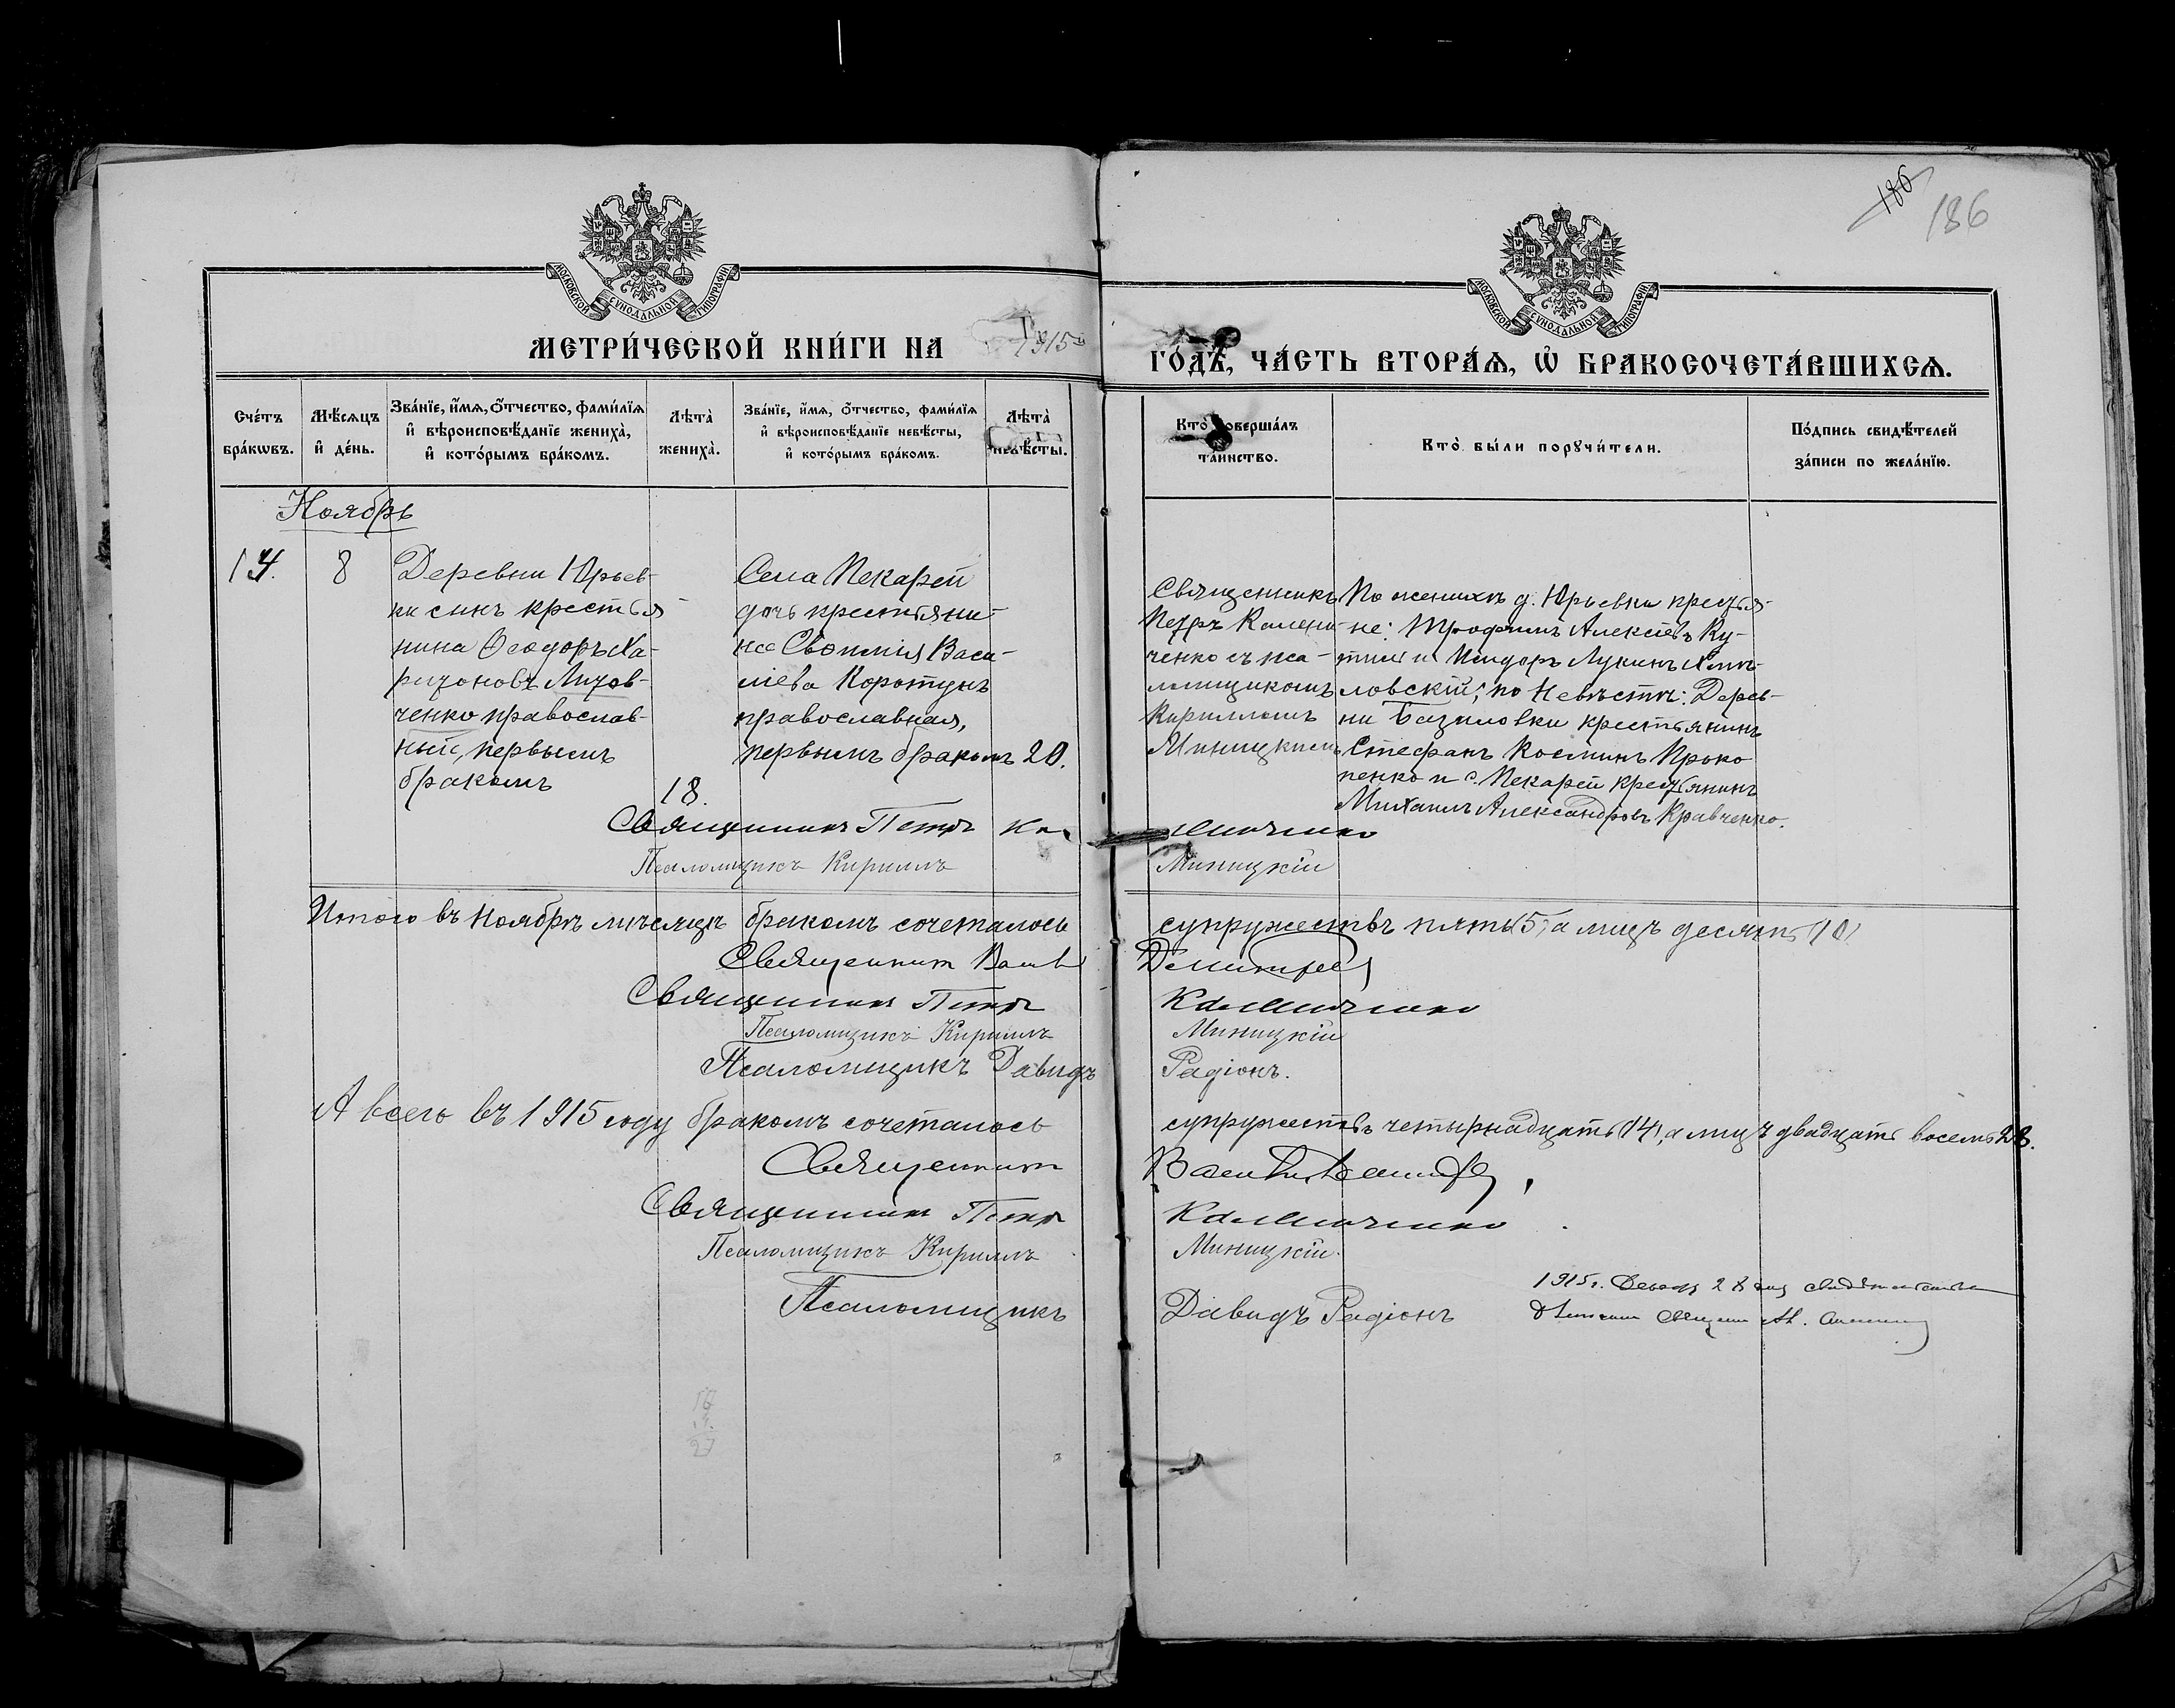 186
186
МОСКОВСКОЙ СѴНОДАЛЬНОЙ ТИПОГРАФІИ
МОСКОВСКОЙ СѴНОДАЛЬНОЙ ТИПОГРАФІИ
МЕТРИ́ЧЕСКОЙ КНИ́ГИ НА 1915
ГО́ДЪ, ЧА́СТЬ ВТОРА́Ѧ, Ѡ҆ БРАКОСОЧЕТА́ВШИХСѦ.
Сче́тъ
бра́кѡвъ.
Мѣ́сѧцъ
и҆ де́нь.
Зва́нїе, и҆́мѧ, ѻ҆́тчество, фами́лїѧ
и҆ вѣроисповѣ́данїе жениха̀,
и҆ кото́рымъ бра́комъ.
Лѣта̀
жениха̀.
Зва́нїе, и҆́мѧ, ѻ҆́тчество, фами́лїѧ
и҆ вѣроисповѣ́данїе невѣ́сты,
и҆ кото́рымъ бра́комъ.
Лѣта̀
невѣ́сты.
Кто̀ соверша́лъ
та́инство.
Кто̀ бы́ли порꙋчи́тели.
По́дпись свидѣ́телей
за́писи по жела́нїю.
Ноябрь
14.
8
Деревни Юрьев-
ки сынъ крестья-
нина Ѳеодоръ Ха-
ритоновъ Литов-
ченко православ-
ный, первымъ
бракомъ
18.
Села Пекарей
дочь крестьяни-
на Евфимія Васи-
ліева Коротунъ
православная,
первымъ бракомъ
20.
Священникъ
Петръ Калени-
ченко съ пса-
ломщикомъ
Кирилломъ
Миницкимъ
По женихѣ д. Юрьевки крестья-
не: Трофимъ Алексіевъ Ку-
и Исидоръ Лукинъ
ловскій; по невѣстѣ: Дерев-
ни Базиловки крестьянинъ
Стефанъ Косминъ Проко
пенко и с. Пекарей крестьянинъ
Михаилъ Александровъ Кравченко.
Священникъ Петръ Калениченко
Псаломщикъ Кириллъ Миницкій
Итого въ Ноябрѣ мѣсяцѣ бракомъ сочеталось супружествъ пять (5) а лицъ десять (10)
Священникъ
Священникъ Петръ Калениченко
Псаломщикъ Кириллъ Миницкій
Псаломщикъ Давидъ Радіонъ.
А всего въ 1915 году бракомъ сочеталось супружествъ четырнадцать (14), а лицъ двадцать восемь 28.
Священникъ
Священникъ Петръ Калениченко
Псаломщикъ Кириллъ Миницкій.
Псаломщикъ Давидъ Радіонъ
1915г. 28